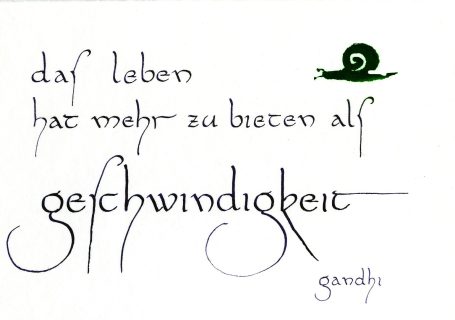 daſ leben
hat mehr zu bieten alſ
geſchwindigkeit
gandhi